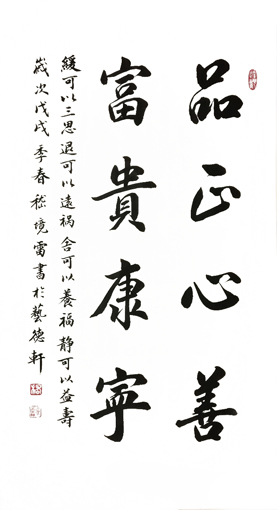 品正心善
富貴康寧
緩可以三思退可以遠祸舍可以養福静可以益壽
歲次戊戌季春嵇境雷書於藝德軒